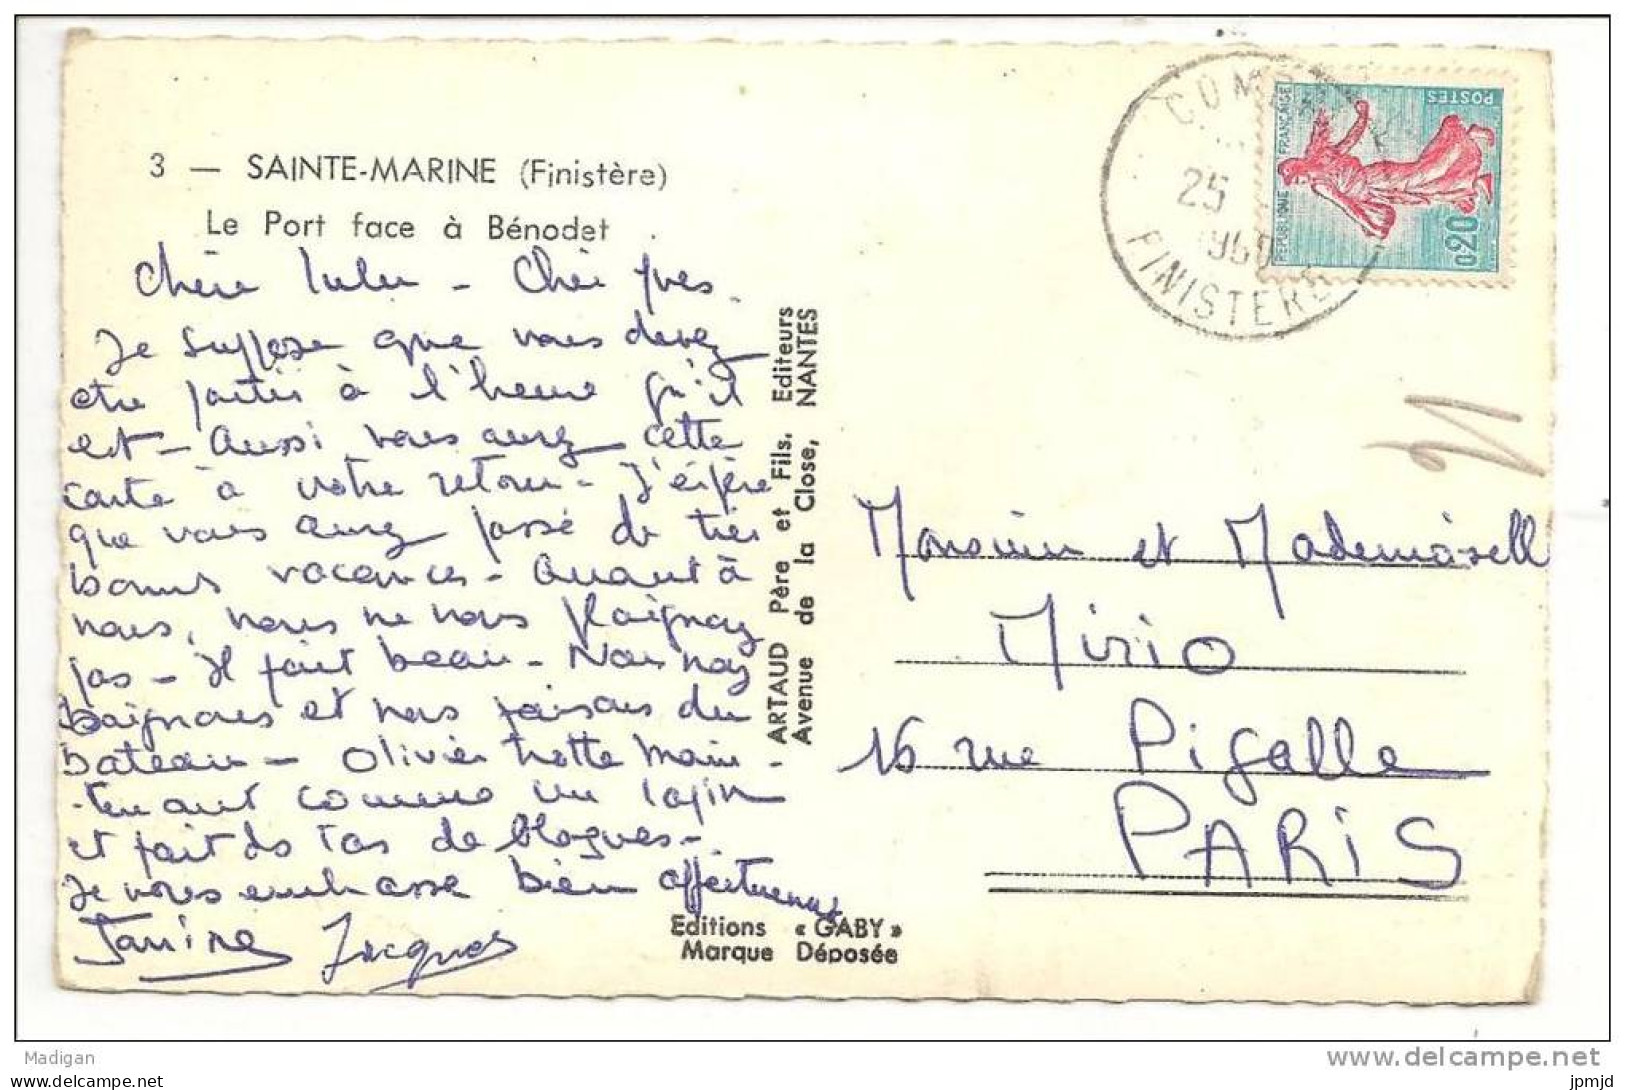 3 — SAINTE-MARINE (Finistère)
Le Port face à Bénodet
Chère Lulu - Cher Yves.
Je suppose que vous devez
etre partis à l'heure qu'il
est - Aussi vous aurez cette
carte à votre retour - J'espère
que vous aurez passé de très
bonnes vacances - Quant à
nous, nous ne nous plaignons
pas - Il fait beau - Nous nous
baignons et nous faisons du
bateau - Olivier trotte main-
tenant comme un lapin
et fait des tas de blagues -
Je vous embrasse bien affectueusement
Janine Jacques
ARTAUD Père et Fils, Editeurs
Avenue de la Close, NANTES
Editions « GABY »
Marque Déposée
25
1960
FINISTERE
REPUBLIQUE FRANÇAISE
POSTES
0,20
Monsieur et Mademoiselle
Mirio
16 rue Pigalle
PARIS
Madigan
www.delcampe.net
jpmjd